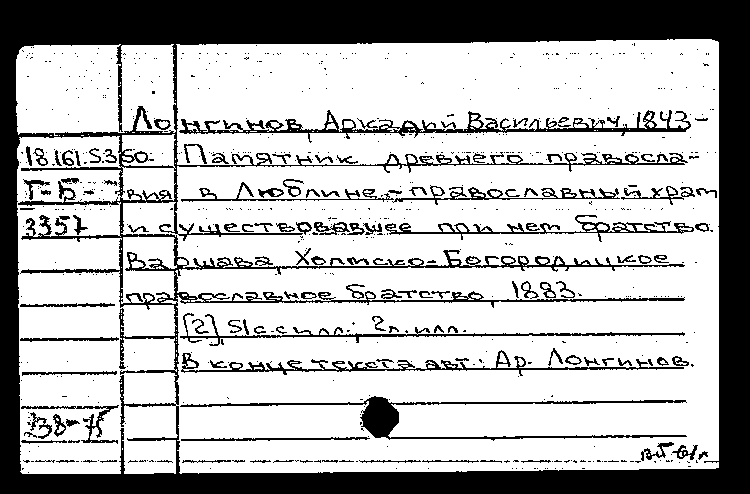 Лонгинов, Аркадий Васильевич, 1843-
18.161.5.360. Памятник древнего правосла-
вия в Люблине - православный храм
3357 и существовавшее при нем братство.
Варшава, Холмско-Богородицкое
православное братство, 1883.
[2], 51 с. с илл.; 2 л. илл.
В конце текста авт.: Ар. Лонгинов.
238-75